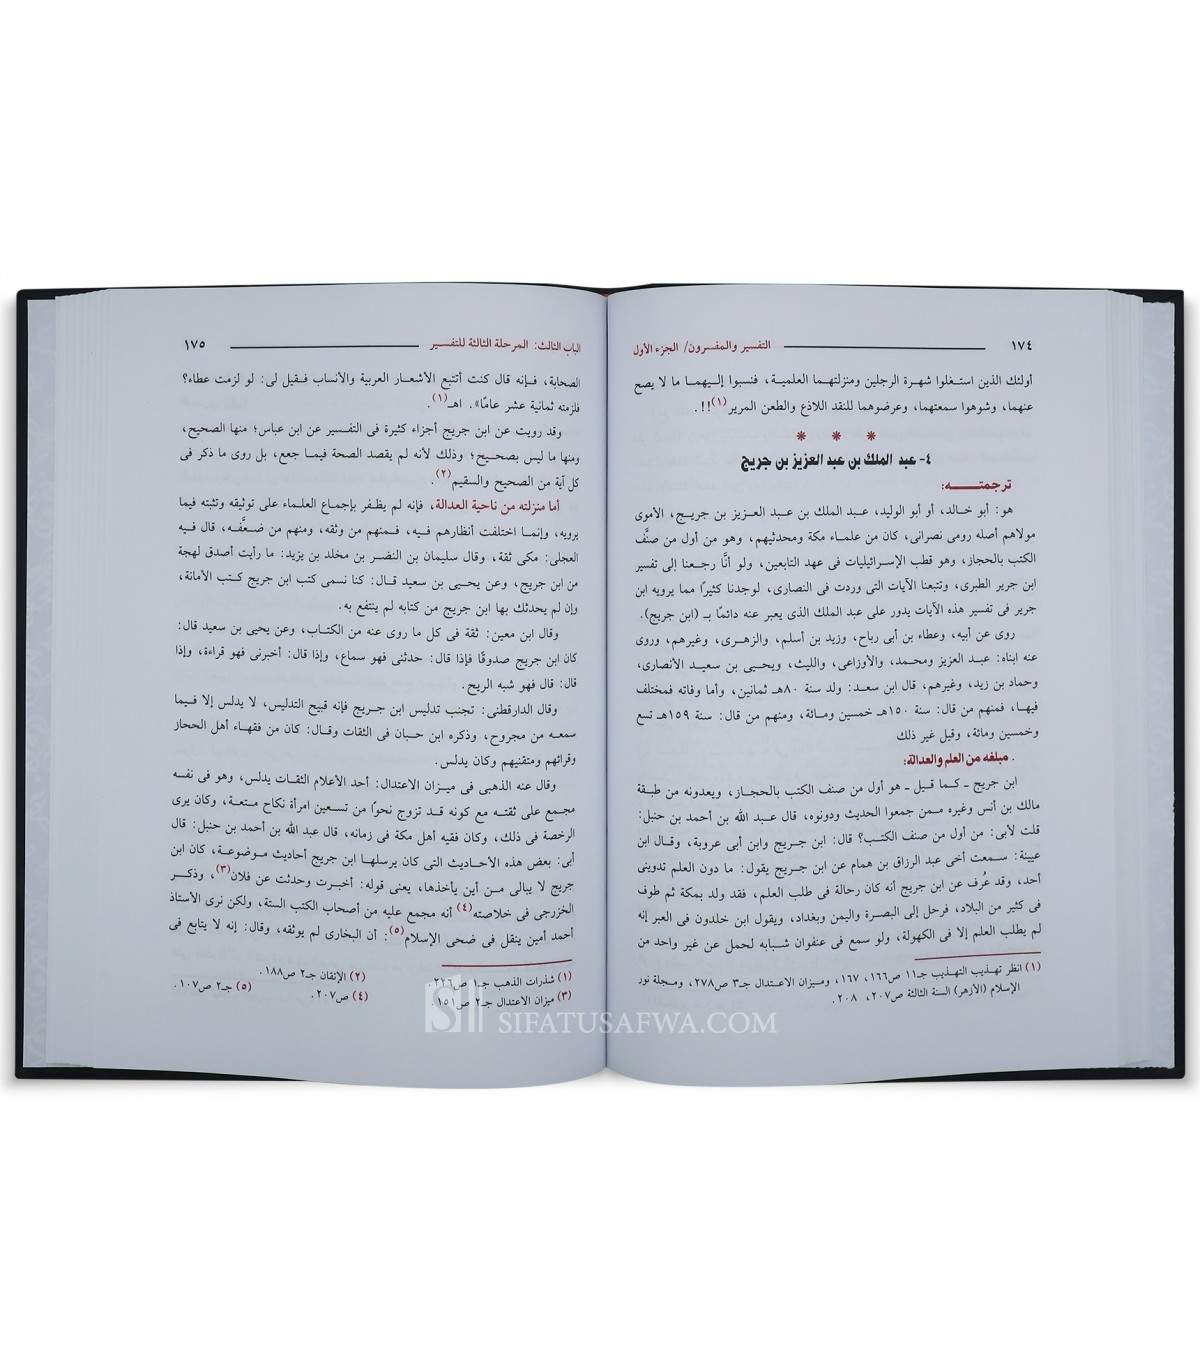 ١٧٤ التفسير والمفسرون/ الجزء الأول
أولئك الذين استغلوا شهرة الرجلين ومنزلتهما العلمية، فنسبوا إليهما ما لا يصح
عنهما، وشوهوا سمعتهما، وعرضوهما للنقد اللاذع والطعن المرير(١)!!.
* * *
٤- عبد الملك بن عبد العزيز بن جريج
ترجمته:
هو: أبو خالد، أو أبو الوليد، عبد الملك بن عبد العزيز بن جريج، الأموى
مولاهم أصله رومى نصرانى، كان من علماء مكة ومحدثيهم، وهو من أول من صنَّف
الكتب بالحجاز، وهو قطب الإسرائيليات فى عهد التابعين، ولو أنَّا رجعنا إلى تفسير
ابن جرير الطبرى، وتتبعنا الآيات التى وردت فى النصارى، لوجدنا كثيرًا مما يرويه ابن
جرير فى تفسير هذه الآيات يدور على عبد الملك الذى يعبر عنه دائمًا بـ (ابن جريج).
روى عن أبيه، وعطاء بن أبى رباح، وزيد بن أسلم، والزهرى، وغيرهم، وروى
عنه ابناه: عبد العزيز ومحمد، والأوزاعى، والليث، ويحيى بن سعيد الأنصارى،
وحماد بن زيد، وغيرهم، قال ابن سعد: ولد سنة ٨٠هـ ثمانين، وأما وفاته فمختلف
فيها، فمنهم من قال: سنة ١٥٠هـ خمسين ومائة، ومنهم من قال: سنة ١٥٩هـ تسع
وخمسين ومائة، وقيل غير ذلك
. مبلغه من العلم والعدالة:
ابن جريج ـ كما قيل ـ هو أول من صنف الكتب بالحجاز، ويعدونه من طبقة
مالك بن أنس وغيره ممن جمعوا الحديث ودونوه، قال عبد الله بن أحمد بن حنبل:
قلت لأبى: من أول من صنف الكتب؟ قال: ابن جريج وابن أبى عروبة، وقال ابن
عيينة: سمعت أخى عبد الرزاق بن همام عن ابن جريج يقول: ما دون العلم تدوينى
أحد، وقد عُرف عن ابن جريج أنه كان رحالة فى طلب العلم، فقد ولد بمكة ثم طوف
فى كثير من البلاد، فرحل إلى البصرة واليمن وبغداد، ويقول ابن خلدون فى العبر إنه
لم يطلب العلم إلا فى الكهولة، ولو سمع فى عنفوان شبابه لحمل عن غير واحد من
(١) انظر تهذيب التهذيب جـ١١ ص١٦٦، ١٦٧، وميزان الاعتدال جـ٣ ص٢٧٨، ومجلة نور
الإسلام (الأزهر) السنة الثالثة ص٢٠٧، ٢٠٨.
الباب الثالث: المرحلة الثالثة للتفسير ١٧٥
الصحابة، فإنه قال كنت أتتبع الأشعار العربية والأنساب فقيل لى: لو لزمت عطاء؟
فلزمته ثمانية عشر عامًا». اهـ(١).
وقد رويت عن ابن جريج أجزاء كثيرة فى التفسير عن ابن عباس؛ منها الصحيح،
ومنها ما ليس بصحيح؛ وذلك لأنه لم يقصد الصحة فيما جمع، بل روى ما ذكر فى
كل آية من الصحيح والسقيم(٢).
أما منزلته من ناحية العدالة، فإنه لم يظفر بإجماع العلماء على توثيقه وتثبته فيما
يرويه، وإنما اختلفت أنظارهم فيه، فمنهم من وثقه، ومنهم من ضعَّفه، قال فيه
العجلى: مكى ثقة، وقال سليمان بن النضر بن مخلد بن يزيد: ما رأيت أصدق لهجة
من ابن جريج، وعن يحيى بن سعيد قال: كنا نسمى كتب ابن جريج كتب الأمانة،
وإن لم يحدثك بها ابن جريج من كتابه لم ينتفع به.
وقال ابن معين: ثقة فى كل ما روى عنه من الكتاب، وعن يحيى بن سعيد قال:
كان ابن جريج صدوقًا فإذا قال: حدثنى فهو سماع، وإذا قال: أخبرنى فهو قراءة، وإذا
قال: قال فهو شبه الريح.
وقال الدارقطنى: تجنب تدليس ابن جريج فإنه قبيح التدليس، لا يدلس إلا فيما
سمعه من مجروح، وذكره ابن حبان فى الثقات وقال: كان من فقهاء أهل الحجاز
وقرائهم ومتقنيهم وكان يدلس.
وقال عنه الذهبى فى ميزان الاعتدال: أحد الأعلام الثقات يدلس، وهو فى نفسه
مجمع على ثقته مع كونه قد تزوج نحوًا من تسعين امرأة نكاح متعة، وكان يرى
الرخصة فى ذلك، وكان فقيه أهل مكة فى زمانه، قال عبد الله بن أحمد بن حنبل: قال
أبى: بعض هذه الأحاديث التى كان يرسلها ابن جريج أحاديث موضوعة، كان ابن
جريج لا يبالى من أين يأخذها، يعنى قوله: أخبرت وحدثت عن فلان(٣)، وذكر
الخزرجى فى خلاصته(٤) أنه مجمع عليه من أصحاب الكتب الستة، ولكن نرى الأستاذ
أحمد أمين ينقل فى ضحى الإسلام(٥): أن البخارى لم يوثقه، وقال: إنه لا يتابع فى
(١) شذرات الذهب جـ١ ص٢٢٦. (٢) الإتقان جـ٢ ص١٨٨.
(٣) ميزان الاعتدال جـ٢ ص١٥١. (٤) ص٢٠٧. (٥) جـ٢ ص١٠٧.
SIFATUSAFWA.COM